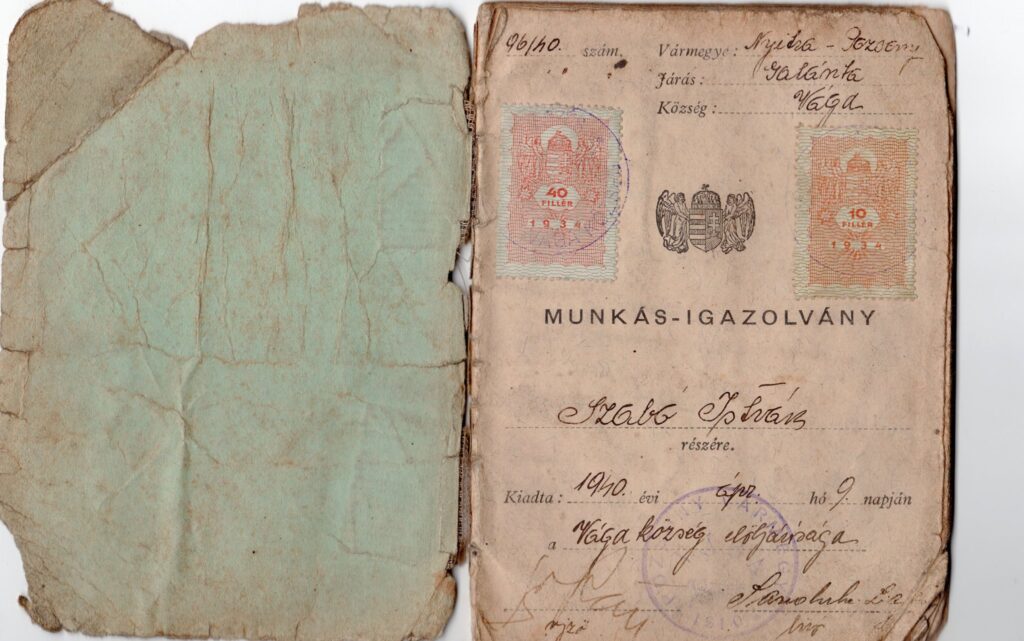 96/40. szám.
Vármegye: Nyitra - Pozsony
Járás: Galánta
Község: Vága
40
FILLÉR
1934
VÁGA
10
FILLÉR
1934
MUNKÁS-IGAZOLVÁNY
Szabó István
részére.
Kiadta: 1940. évi ápr. hó 9. napján
a Vága község elöljárósága